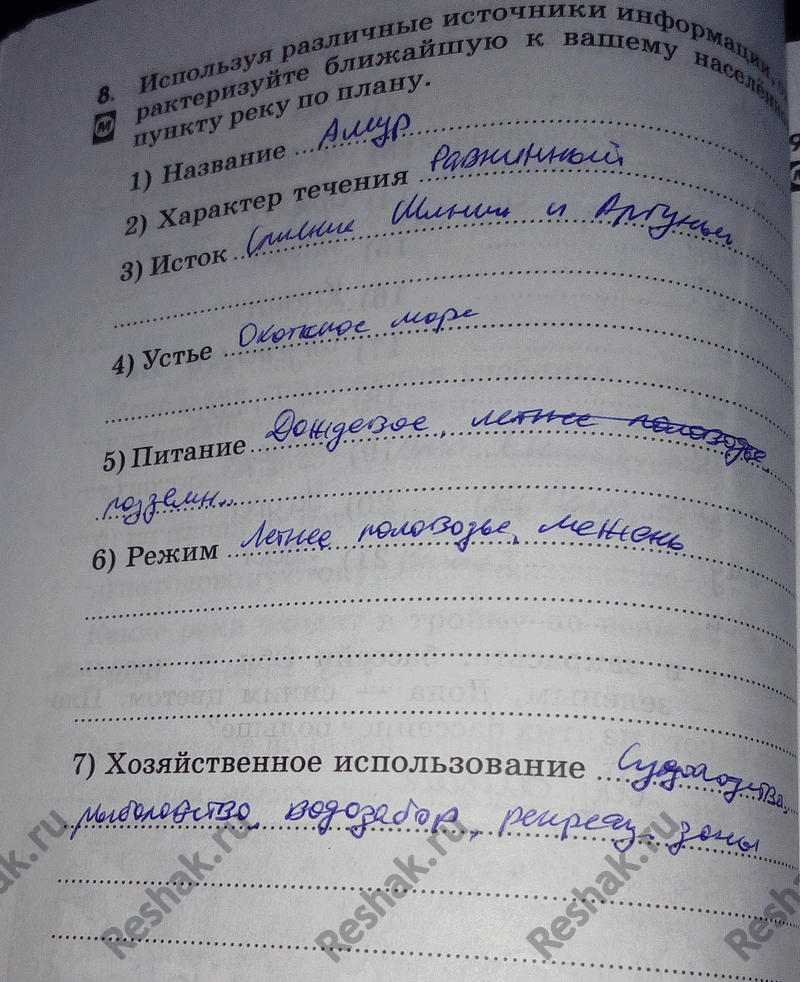 8. Используя различные источники информации,
рактеризуйте ближайшую к вашему населённо
пункту реку по плану.
М
1) Название Амур
2) Характер течения Равнинный
3) Исток Слияние Шилки и Аргуньи
4) Устье Охотское море
5) Питание Дождевое, летнее половодье
подземн..
6) Режим Летнее половодье, межень
7) Хозяйственное использование Судоходство,
рыболовство, водозабор, рекреац. зоны
Reshak.ru
Reshak.ru
Reshak.ru